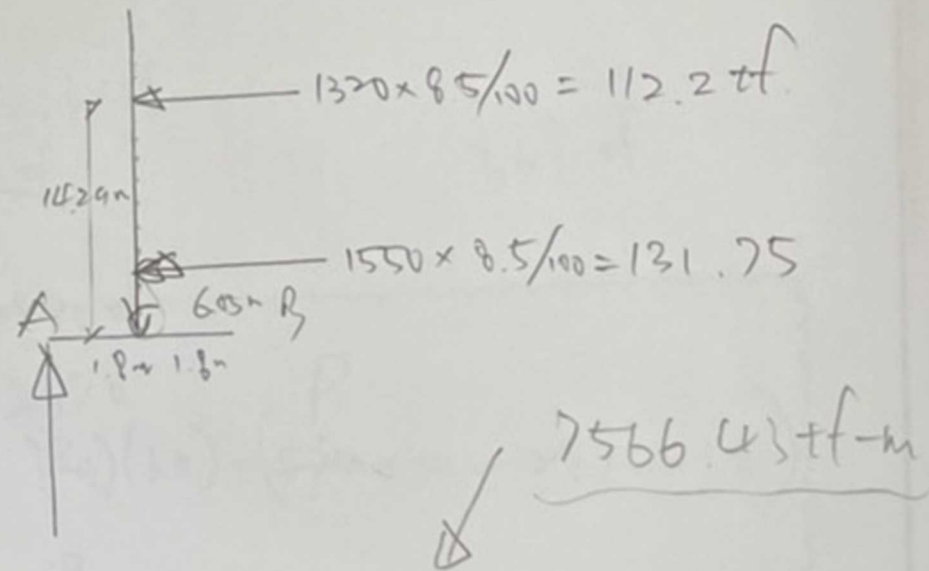 1320×8.5/100 = 112.2 tf
14.29m
1550 × 8.5/100 = 131.75
6.05m B
A
1.8m 1.8m
7566.43 tf-m